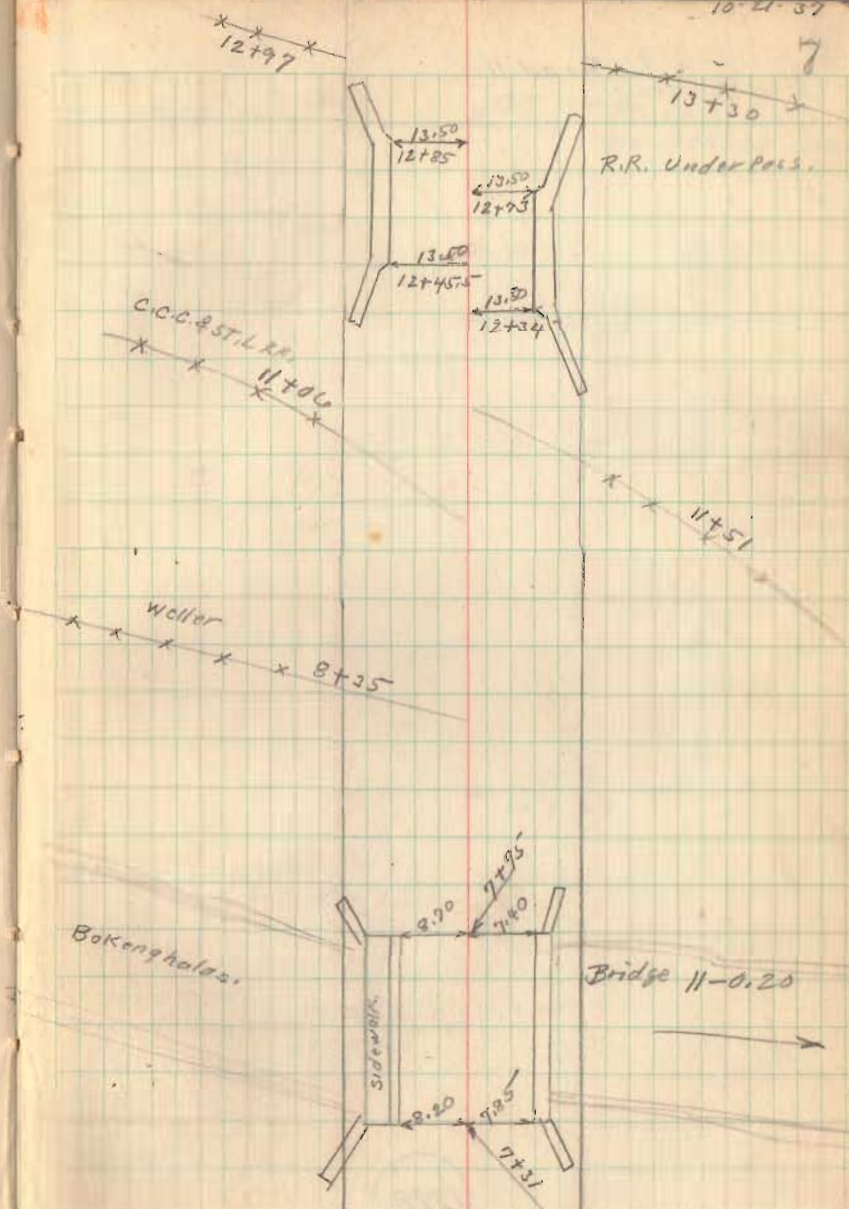 10-21-37
7
12+97
13+30
R.R. UnderPass.
13.50
12+85
13.50
12+73
13.50
12+45.5
13.50
12+34
C.C.C. & ST. L RR.
11+06
11+51
Weller
8+35
7+95
8.70
7.40
Bokenghalas.
Bridge 11-0.20
Sidewalk.
8.20
7.85
7+31